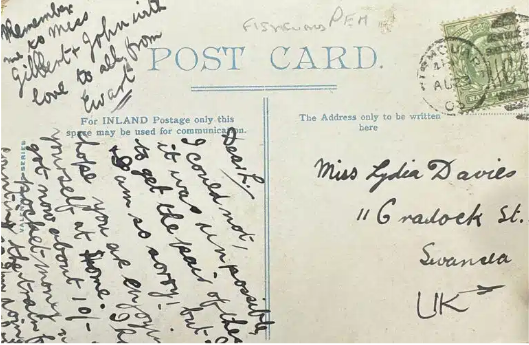 Remember
me to Miss
Gilbert & John with
love to all from
Ewart
FISHGUARD PEM
POST CARD.
For INLAND Postage only this
space may be used for communication.
The Address only to be written
here
Dear L.
I could not,
it was impossible
to get the pair of these
I am so sorry! but
hope you are enjoying
yourself at home. I
got now about 10/-
pocket-money
the train
Miss Lydia Davies
11 Cradock St.
Swansea
UK